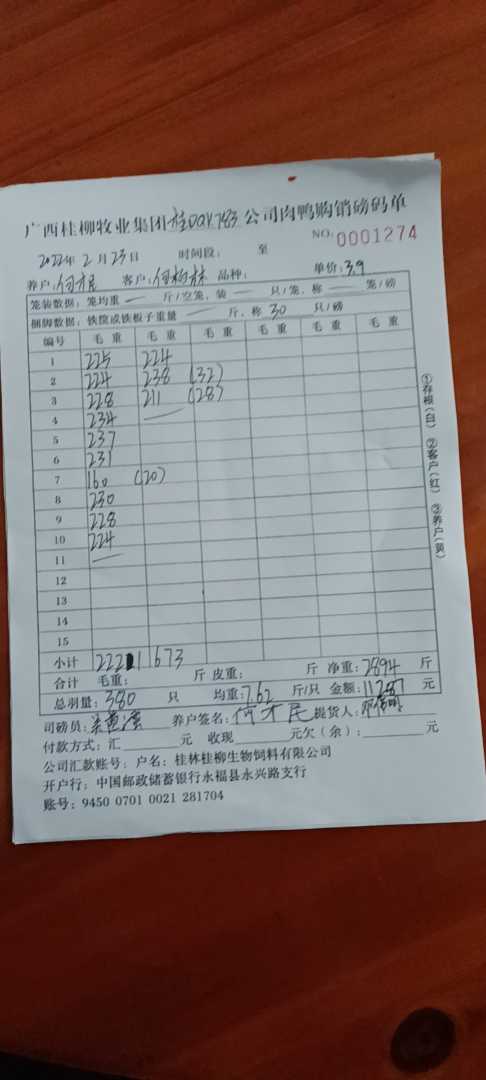 广西桂柳牧业集团桂DQY783公司肉鸭购销磅码单
NO: 0001274
2022年2月23日 时间段： 至
养户： 客户：何柏林 品种： 单价：3.9
笼装数据：笼均重 — 斤/空笼，装 — 只/笼，称 — 笼/磅
捆脚数据：铁筐或铁板子重量 — 斤，称 30 只/磅
编号 毛重 毛重 毛重 毛重 毛重 毛重
1 225 224
2 224 238 (32)
3 228 211 (28)
4 234 —
5 237
6 231
7 160 (20)
8 230
9 228
10 224
11 —
12
13
14
15
小计 2221 673
合计 毛重： 斤 皮重： 斤 净重：2894 斤
总羽量：380 只 均重：7.62 斤/只 金额：11287 元
司磅员： 养户签名：何才民 提货人：
付款方式：汇 元 收现 元欠（余）： 元
公司汇款账号：户名：桂林桂柳生物饲料有限公司
开户行：中国邮政储蓄银行永福县永兴路支行
账号：9450 0701 0021 281704
①存根（白） ②客户（红） ③养户（黄）